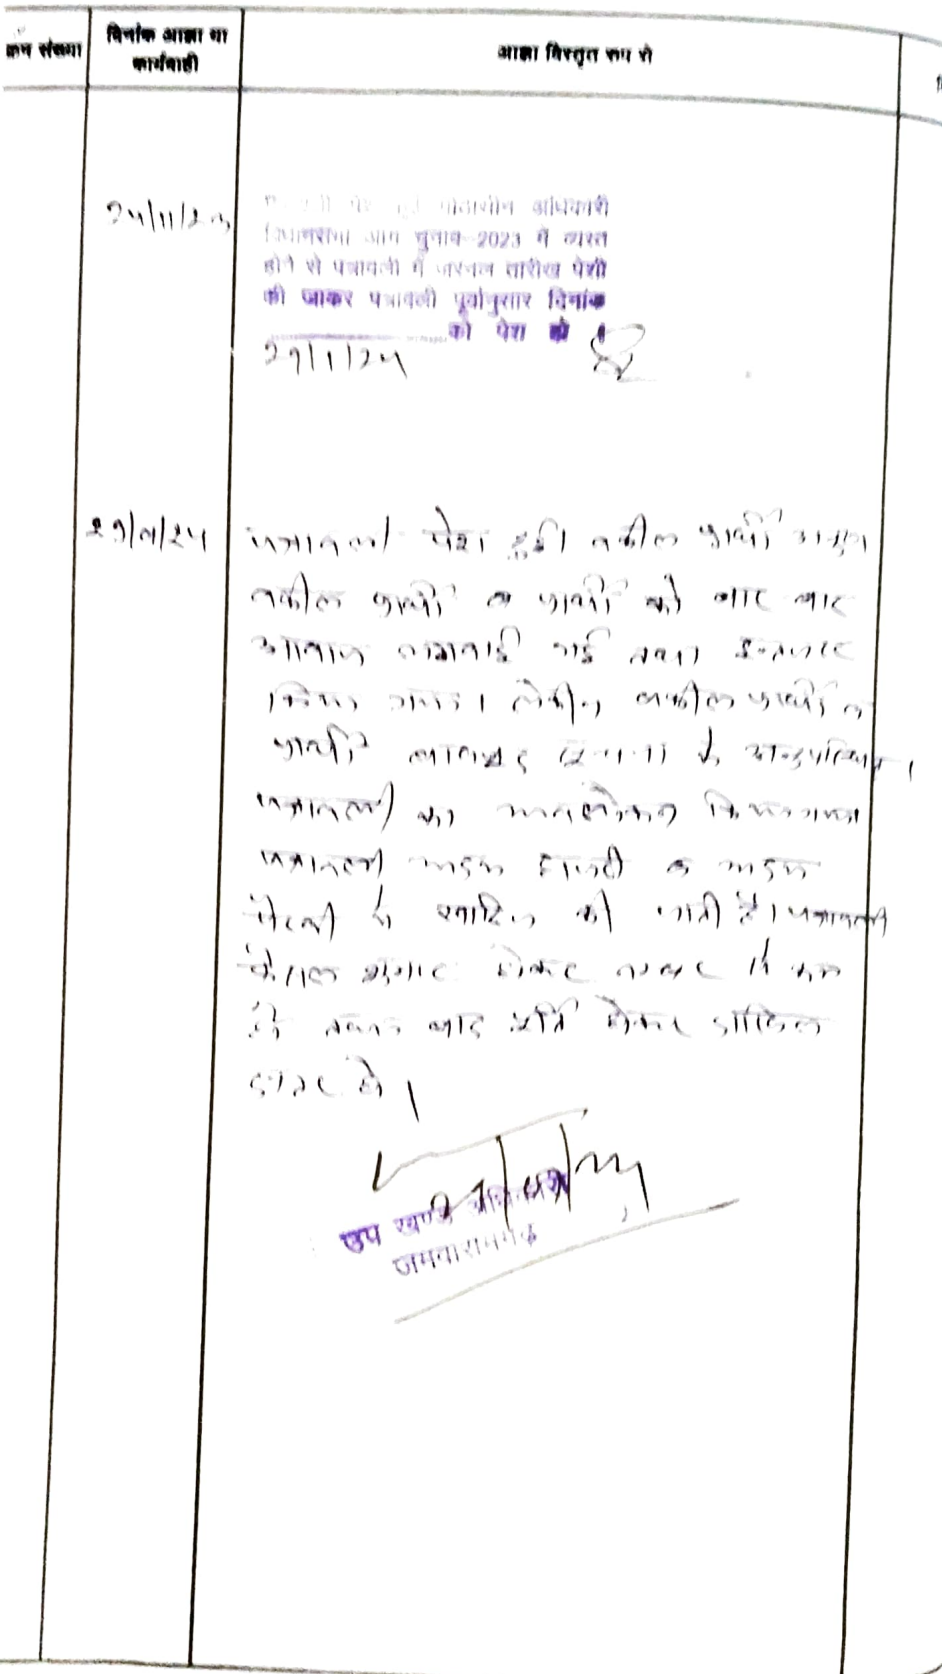 क्रम संख्या
दिनांक आज्ञा या
कार्यवाही
आज्ञा विस्तृत रूप से
पीठासीन अधिकारी
विधानसभा आम चुनाव-2023 में व्यस्त
होने से पत्रावली में जनरल तारीख पेशी
की जाकर पत्रावली पूर्वानुसार दिनांक
को पेश हो ।
पत्रावली पेश हुई। वकील प्रार्थी
वकील प्रार्थी व प्रार्थी को बार बार
आवाज लगवाई गई तथा इन्तजार
किया गया। लेकीन वकील प्रार्थी व
प्रार्थी बावजूद सूचना के अनुपस्थित।
पत्रावली का अवलोकन किया गया
पत्रावली अदम हाजरी व अदम
पैरवी में खारिज की जाती है। पत्रावली
फैसल शुमार होकर नम्बर से कम
हो बाद पूर्ति होकर दाखिल
दफ्तर हो।
उप खण्ड अधिकारी
जमवारामगढ़